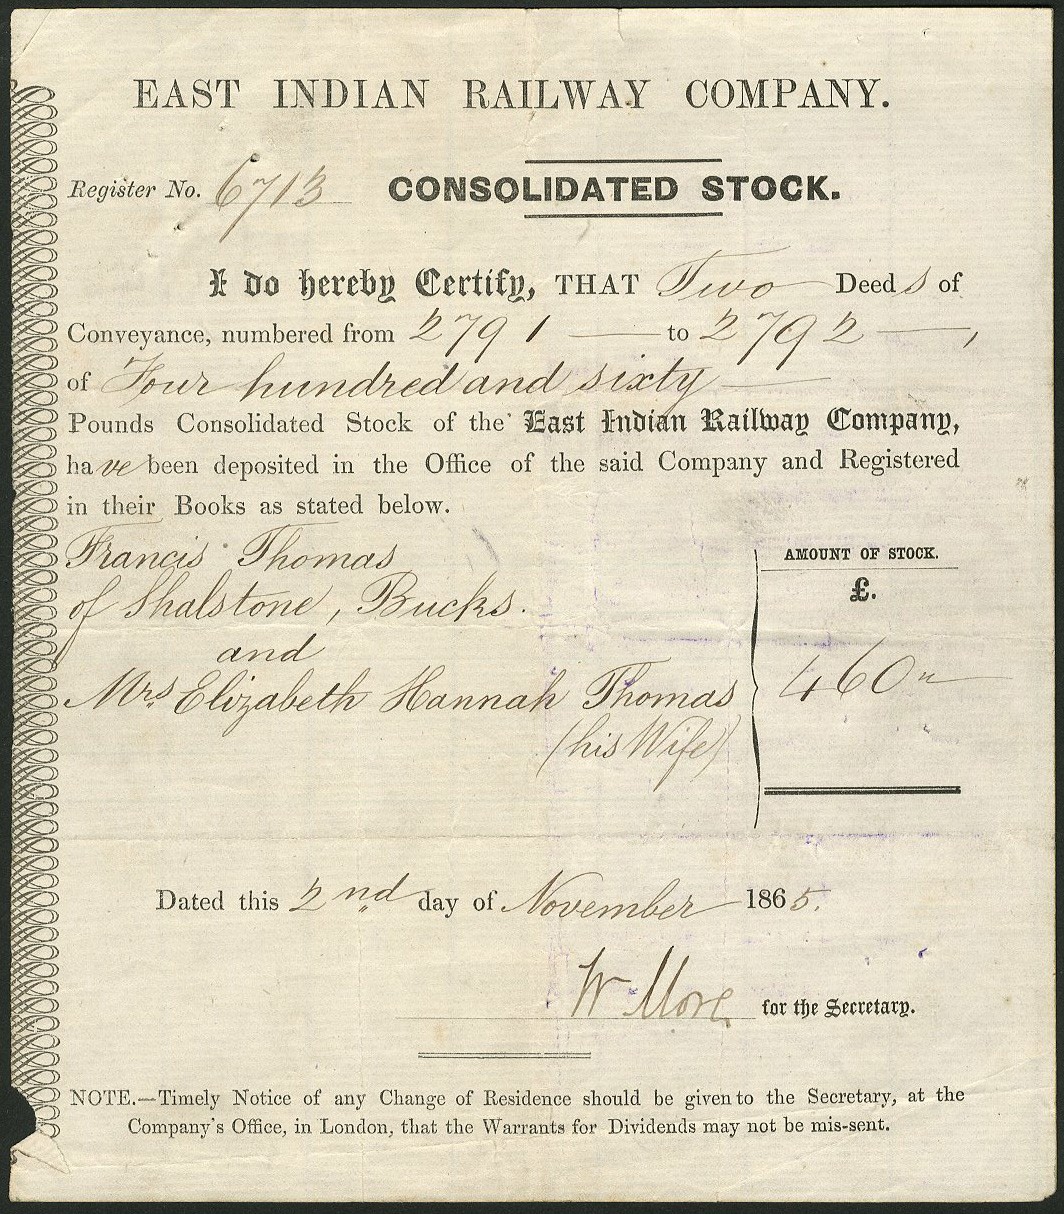 EAST INDIAN RAILWAY COMPANY.
Register No. 6713 CONSOLIDATED STOCK.
I do hereby Certify, THAT Two Deeds of
Conveyance, numbered from 2791 — to 2792 —,
of Four hundred and sixty —
Pounds Consolidated Stock of the East Indian Railway Company,
have been deposited in the Office of the said Company and Registered
in their Books as stated below.
Francis Thomas
of Shalstone, Bucks.
and
Mrs. Elizabeth Hannah Thomas
(his Wife)
AMOUNT OF STOCK.
£.
460 "
Dated this 2nd day of November 1865.
W More for the Secretary.
NOTE.—Timely Notice of any Change of Residence should be given to the Secretary, at the
Company's Office, in London, that the Warrants for Dividends may not be mis-sent.